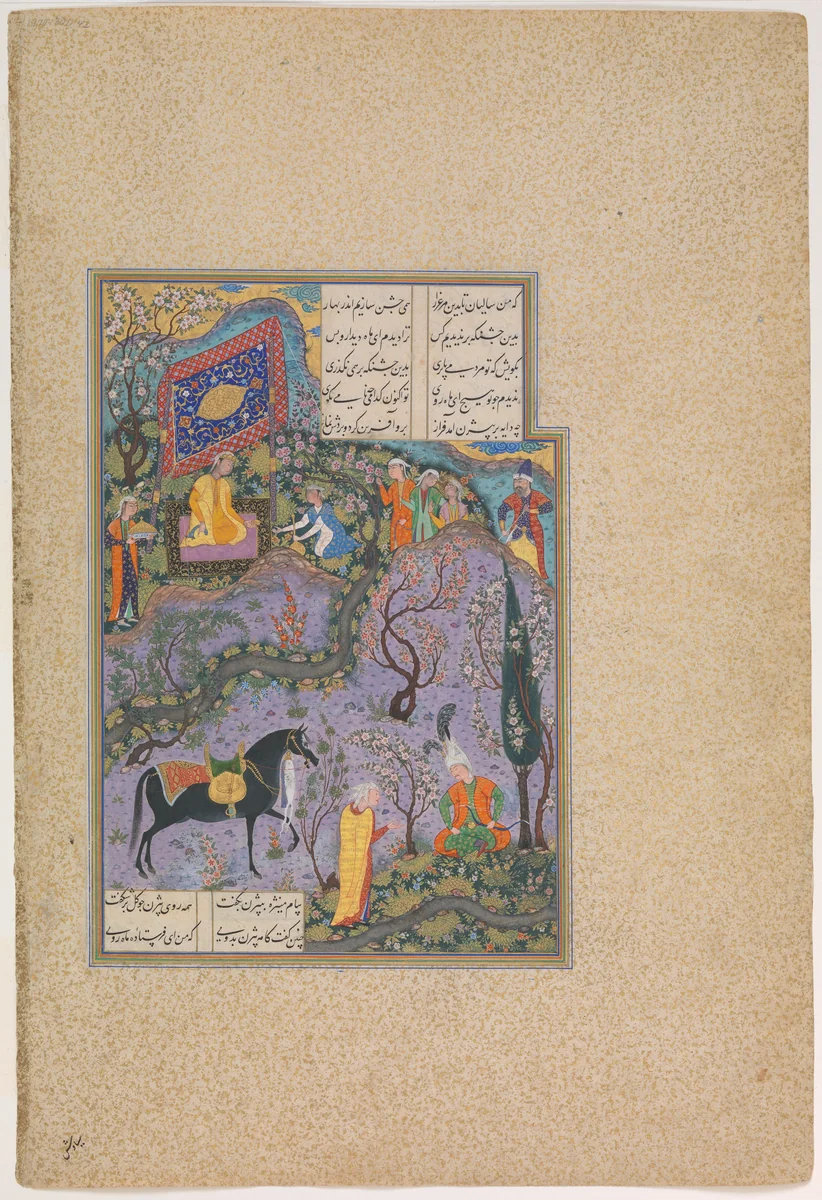 که من سالیان تا بدین مرغزار همی جشن سازیم اندر بهار
بدین جشنگه بر ندیدیم کس ترا دیدم ای ماه دیدار و بس
بگویش که تو مردمی یا پری بدین جشنگه بر همی بگذری
ندیدم چو تو هیچ ای ماه روی تو اکنون کدامی
چه دایه بر بیژن آمد فراز برو آفرین کرد و بردش نماز
پیام منیژه به بیژن بگفت همه روی بیژن چو گل بر شکفت
چنین گفت بیژن بدوی که من ای فرستاده ماه روی